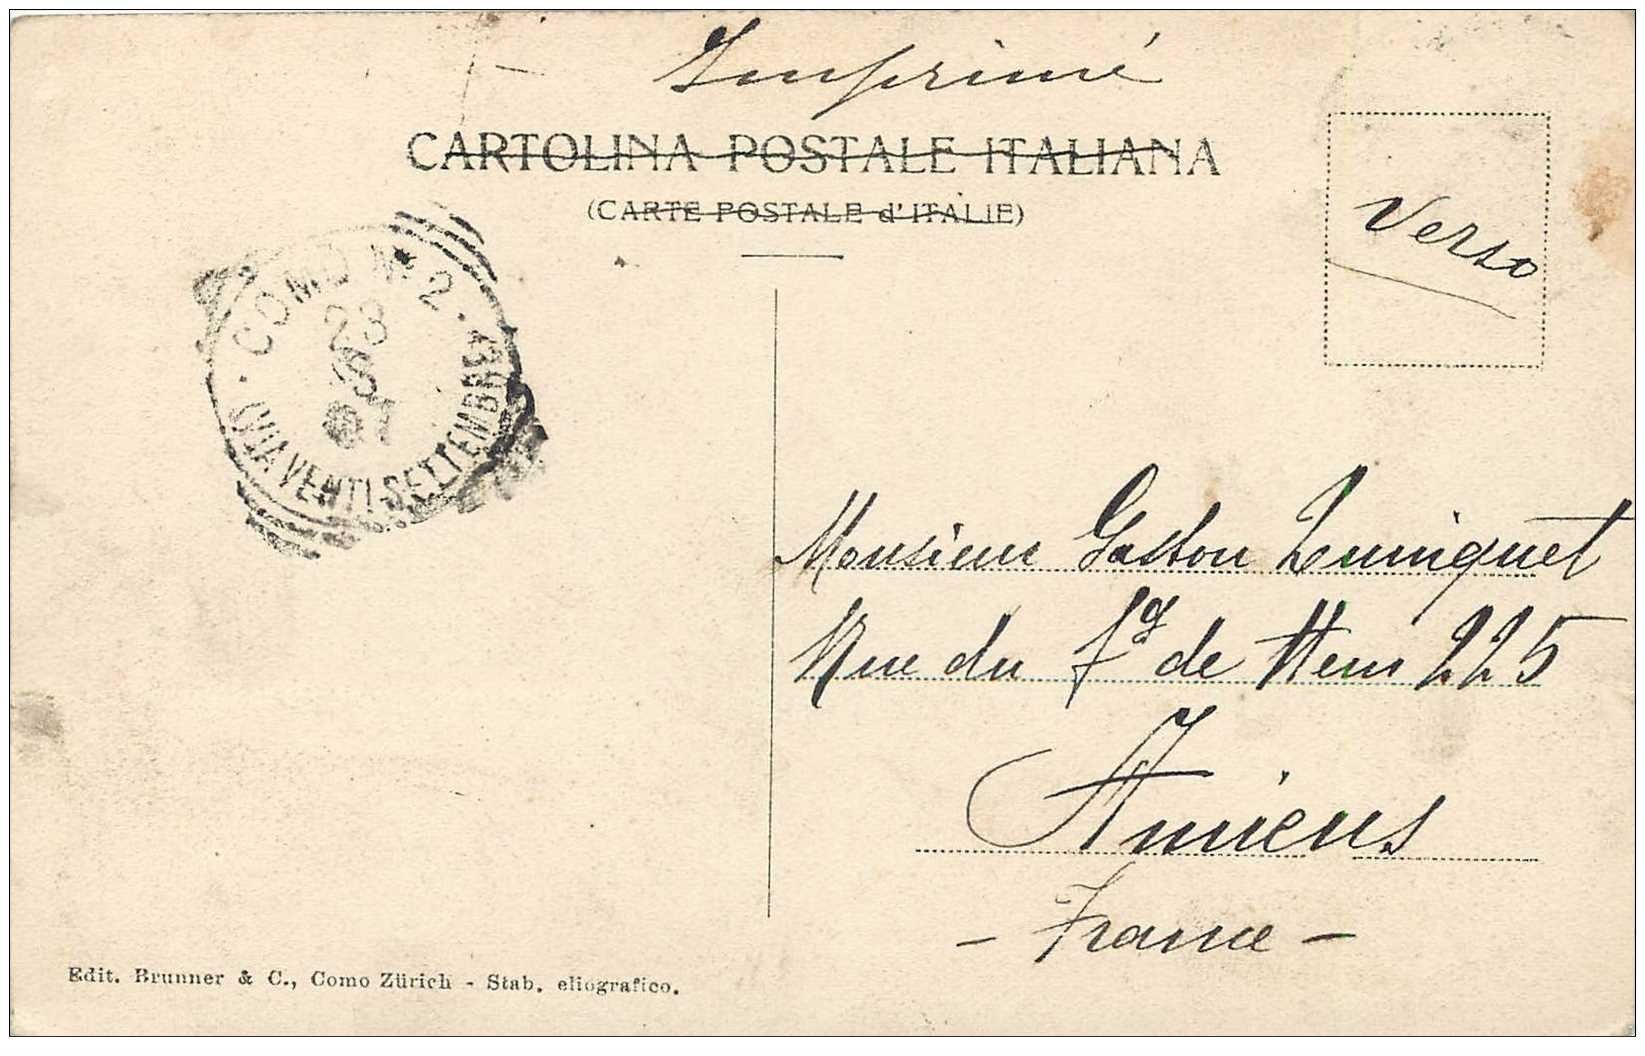 Imprimé
CARTOLINA POSTALE ITALIANA
(CARTE POSTALE d'ITALIE)
Verso
COMO Nº 2.
(VIA VENTI SETTEMBRE)
23
07
Monsieur Gaston
Rue du fg de Hem 225
Amiens
- France -
Edit. Brunner & C., Como Zürich - Stab. eliografico.